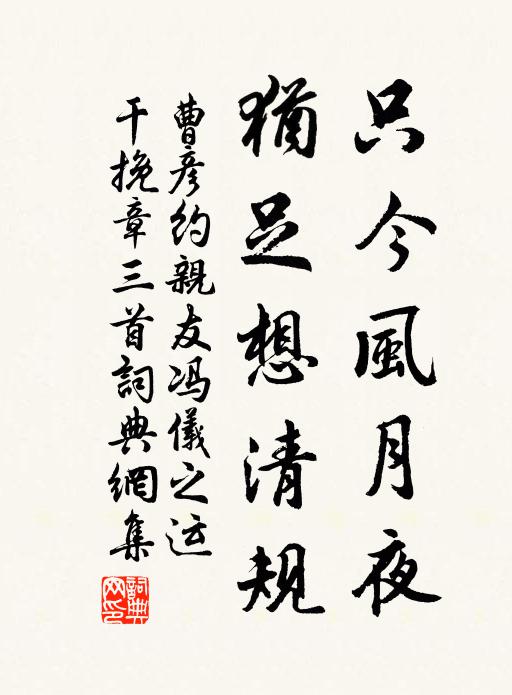 只今風月夜
猶足想清規
曹彦約親友冯儀之运
干挽章三首詞典網集
詞典網印